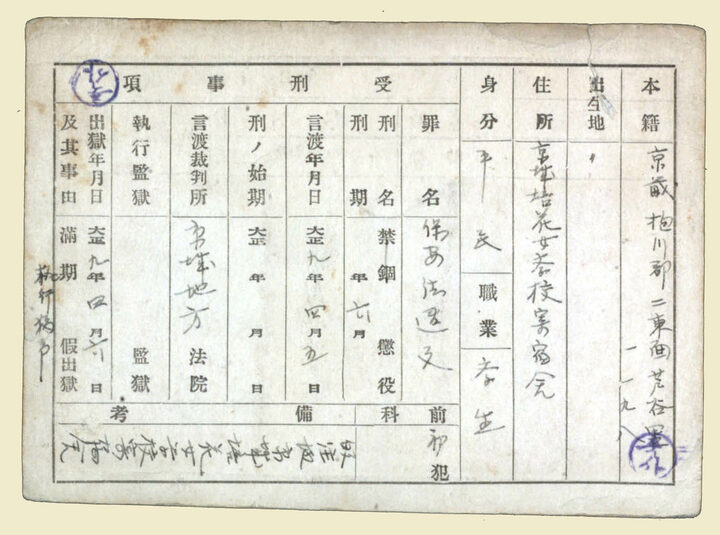 本籍 京畿 抱川郡 二東面 芦谷里
一一九八
出生地 〃
住所 京城培花女学校寄宿舍
身分 平民 職業 学生
受刑事項
罪名 保安法違反
刑名 禁錮 懲役
刑期 年六月
言渡年月日 大正九年四月五日
刑ノ始期 大正 年 月 日
言渡裁判所 京城地方法院
執行監獄 監獄
出獄年月日 大正九年四月六日
及其事由 滿期 假出獄
執行猶予
前科 初犯
備考